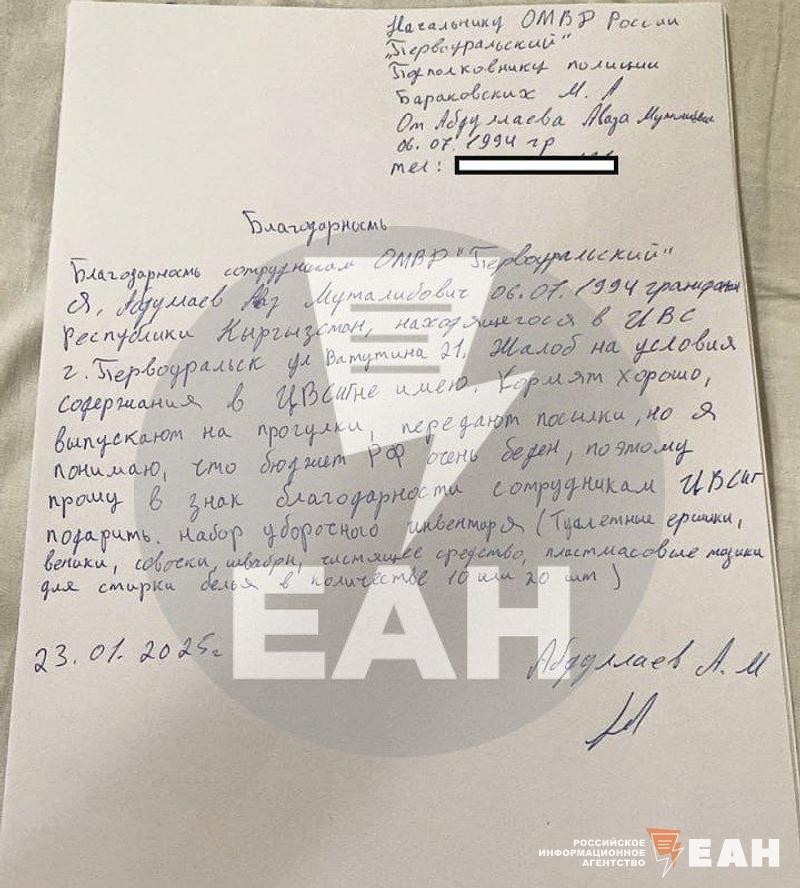 Начальнику ОМВР России
"Первоуральский"
Подполковнику полиции
Бараковских М. А
От Абдуллаева Аваза
06.07.1994 гр
тел:
Благодарность
Благодарность сотрудникам ОМВР "Первоуральский"
Я, Абдуллаев Муталибович 06.07.1994 гражданин
Республики Кыргызстан, находящегося в ЦВС
г. Первоуральск ул Ватутина 21. Жалоб на условия
содержания в ЦВСиГ не имею. Кормят хорошо,
выпускают на прогулки, передают посылки, но я
понимаю, что бюджет РФ очень беден, поэтому
прошу в знак благодарности сотрудникам ЦВСиГ
подарить. набор уборочного инвентаря (Туалетные ершики,
веники, совочки, швабры, чистящее средство, пластмасовые тазики
для стирки белья в количестве 10 или 20 шт)
23.01.2025г
Абдуллаев А. М
ЕАН
РОССИЙСКОЕ
ИНФОРМАЦИОННОЕ
АГЕНТСТВО
ЕАН